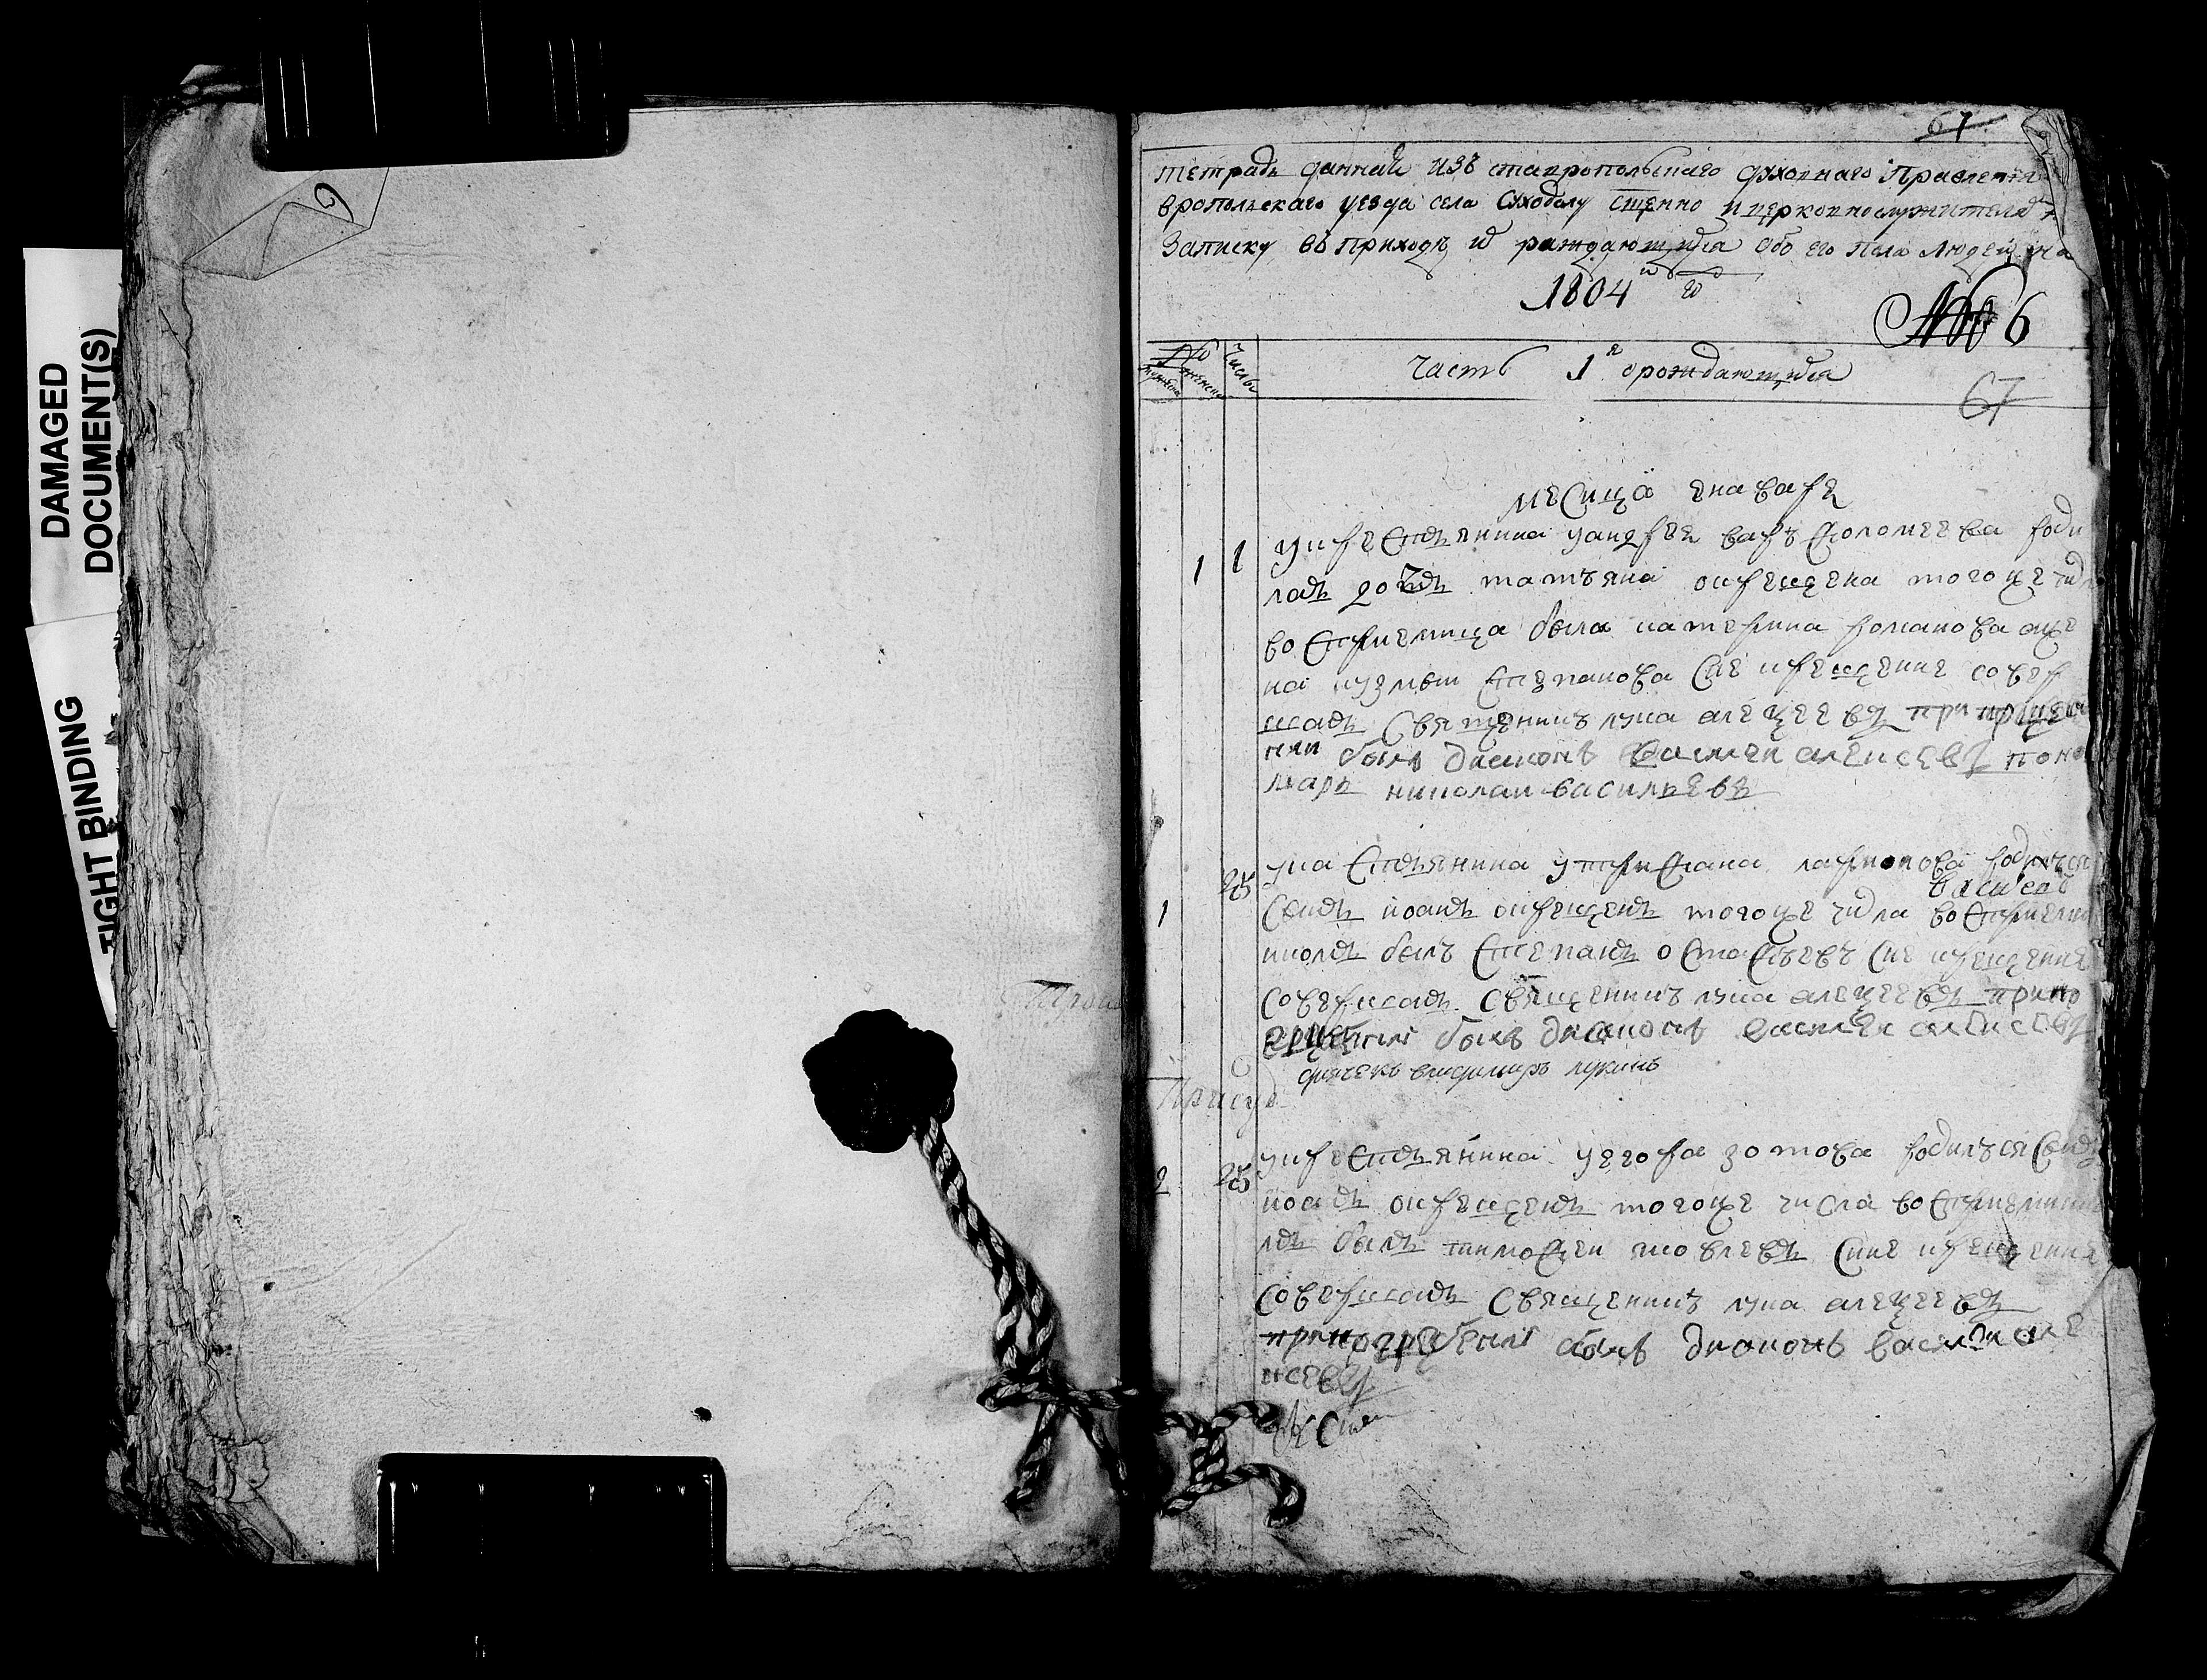 DAMAGED
DOCUMENT(S)
TIGHT BINDING
67
тетрадь данная изъ ставропольскаго духовнаго Правления
вропольскаго уезда села Суходолу сщенно и церковнослужителямъ
Записку въ приходѣ их раждающихся обоего пола людей на
1804 й годъ
№ 6
число
часть 1я о рождающихся
67
месяца енваре
1 1 у крестьянина у андрея варѳоломеева роди
лась дочь татьяна окрещена того же числа
восприемница была катерина романова жена
на кузмы степанова сие крещение совер
шалъ священникъ лука алеѯеевъ при креще
нии былъ диаконъ василей алеисевъ поно
марь николаи васильевъ
25 у кресьянина у трифана ларионова родился
василей
1 сынъ иоанъ окрещенъ того же числа восприем
никомъ былъ степанъ остафьевъ сие крещение
совершалъ священникъ лука алеѯеевъ при по
грѣбенiи былъ диаконъ василеи алеисевъ
дьячекъ владимиръ лукинъ
2 25 у крестьянина у егора зотова родился сынъ
иоанъ окрещенъ того же числа восприемнико
мъ былъ тимофеи яковлевъ сие крещение
совершалъ священникъ лука алеѯеевъ
при погрѣбенiи былъ диаконъ василеи але
исевъ